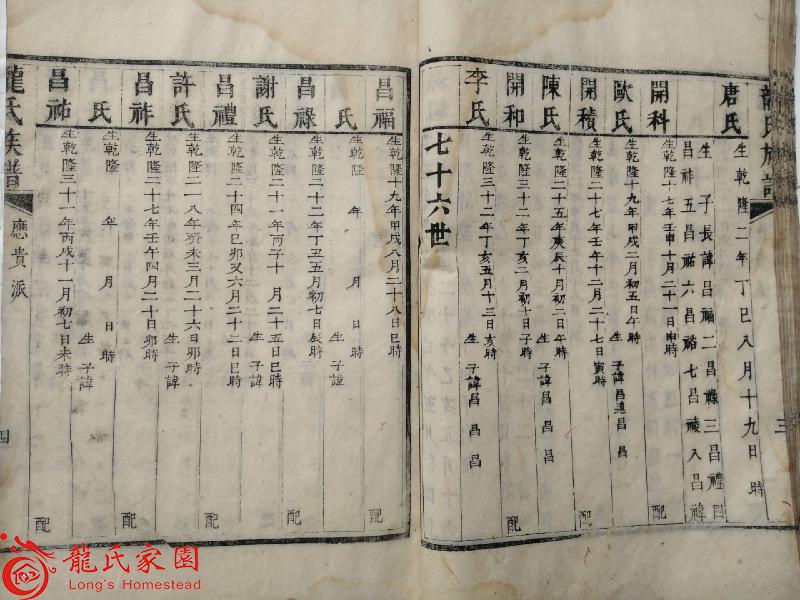 龍氏族譜
三
唐氏 生乾隆二年丁巳八月十九日 時
生 子長諱昌福二昌祿三昌禮四
昌祚五昌祐六昌祐七昌祾八昌禕
開科 生乾隆十七年壬申十月二十一日申時 配
歐氏 生乾隆十九年甲戌二月初五日午時 生 子諱昌遠昌 昌
開積 生乾隆二十七年壬午十二月二十七日寅時 配
陳氏 生乾隆二十五年庚辰十月初二日午時 生 子諱昌 昌 昌
開和 生乾隆三十二年丁亥二月初十日子時 配
李氏 生乾隆三十二年丁亥五月十三日亥時 生 子諱昌 昌 昌
七十六世
昌福 生乾隆十九年甲戌八月二十八日巳時 配
氏 生乾隆 年 月 日 時 生 子諱
昌祿 生乾隆二十二年丁丑五月初七日辰時 配
謝氏 生乾隆二十一年丙子十 月二十五日巳時 生 子諱
昌禮 生乾隆二十四年己卯又六月二十二日巳時 配
許氏 生乾隆二十八年癸未三月二十六日卯時 生 子諱
昌祚 生乾隆二十七年壬午四月二十日卯時 配
氏 生乾隆 年 月 日 時 生 子諱
昌祐 生乾隆三十一年丙戌十一月初七日未時 配
龍氏族譜
應貴派
四
龍氏家園
Long's Homestead